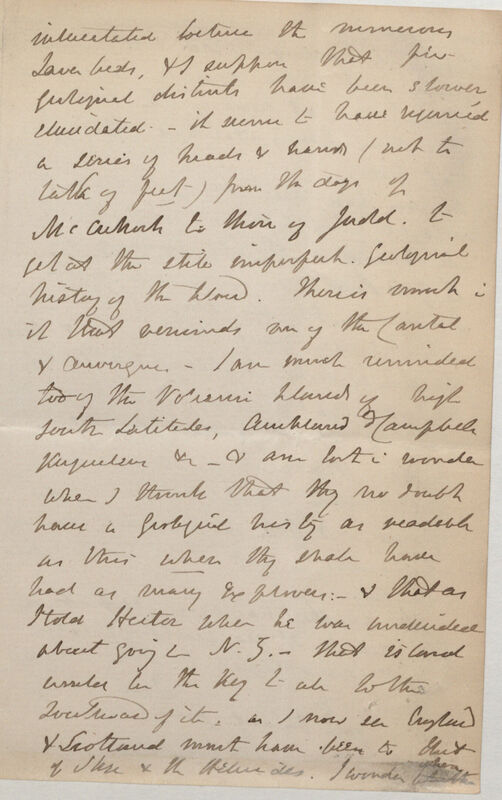 intercalated between the numerous
Lava beds, & I suppose that few
geological districts have been slower
elucidated. – it seems to have required
a series of heads & hands (not to
talk of feet) from the days of
McCulloch to those of Judd. to
get at the still imperfect. Geological
history of the Island. There is much in
it that reminds me of the Cantal
& Auvergne. – I am much reminded
too of the Volcanic Islands of high
South Latitudes, Auckland & Campbell
Kerguelen &c – & am lost in wonder
when I think that they no doubt
have a Geological history as readable
as this when they shall have
had as many Explorers: – & that as
I told Hector when he was undecided
about going to N.Z. – that island
would be the key to all to the
Southward of it. as I now see England
& Scotland must have been to that
of Skye & the Hebrides. I wonder when